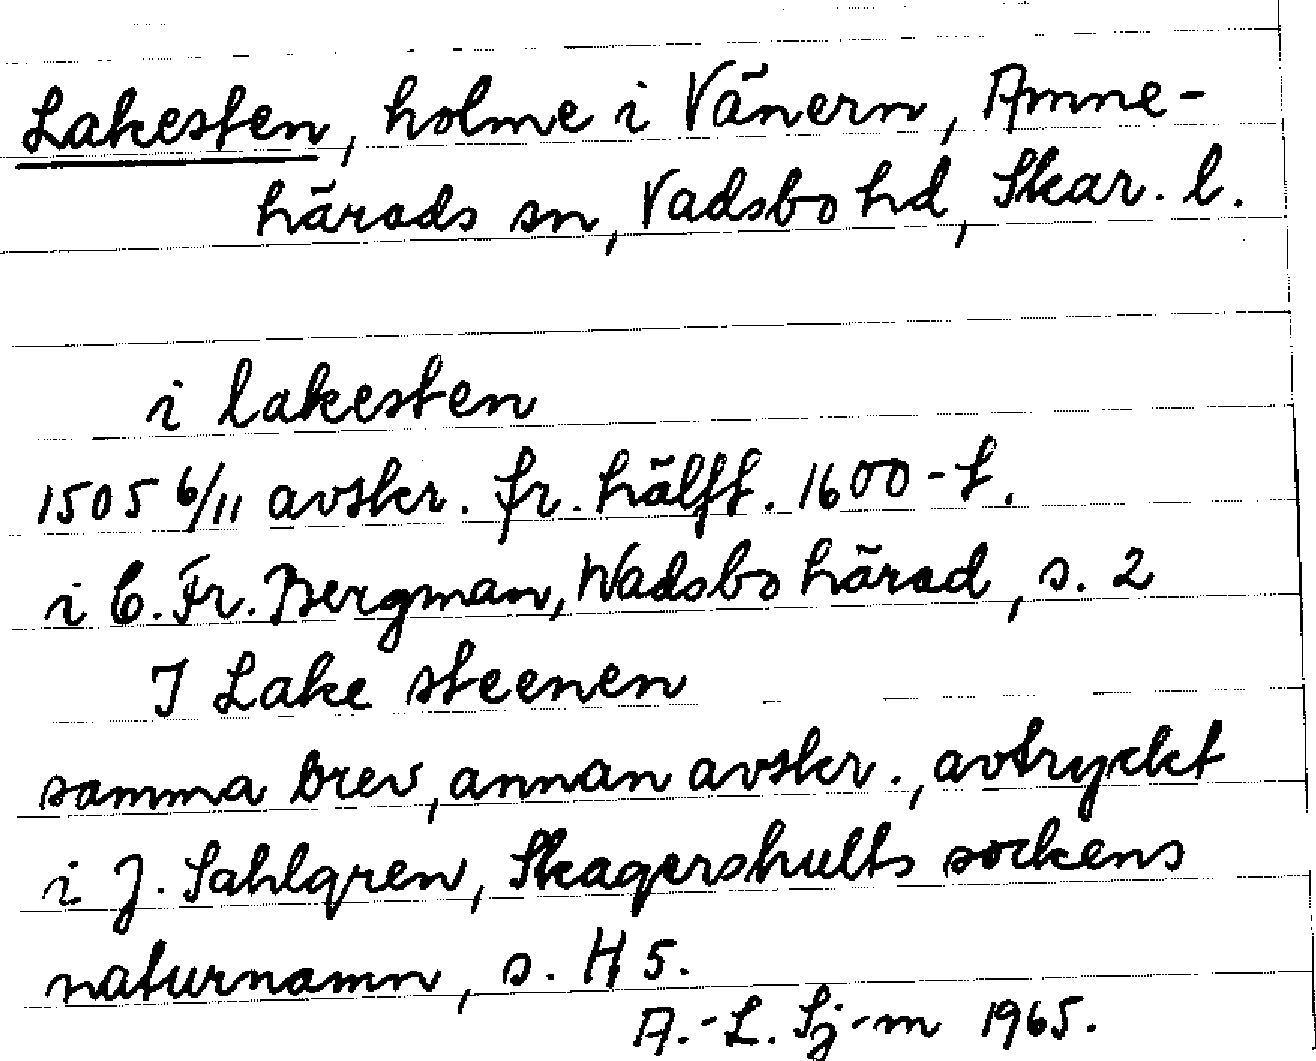 Lakesten, holme i Vänern, Amne-
härads sn, Vadsbo hd, Skar. l.
i lakesten
1505 6/11 avskr. fr. hälft. 1600-t.
i C. Fr. Bergman, Wadsbo härad, s. 2
I Lake steenen
samma brev, annan avskr., avtryckt
i J. Sahlgren, Skagershults sockens
naturnamn, s. H 5.
A.-L. Sj-m 1965.